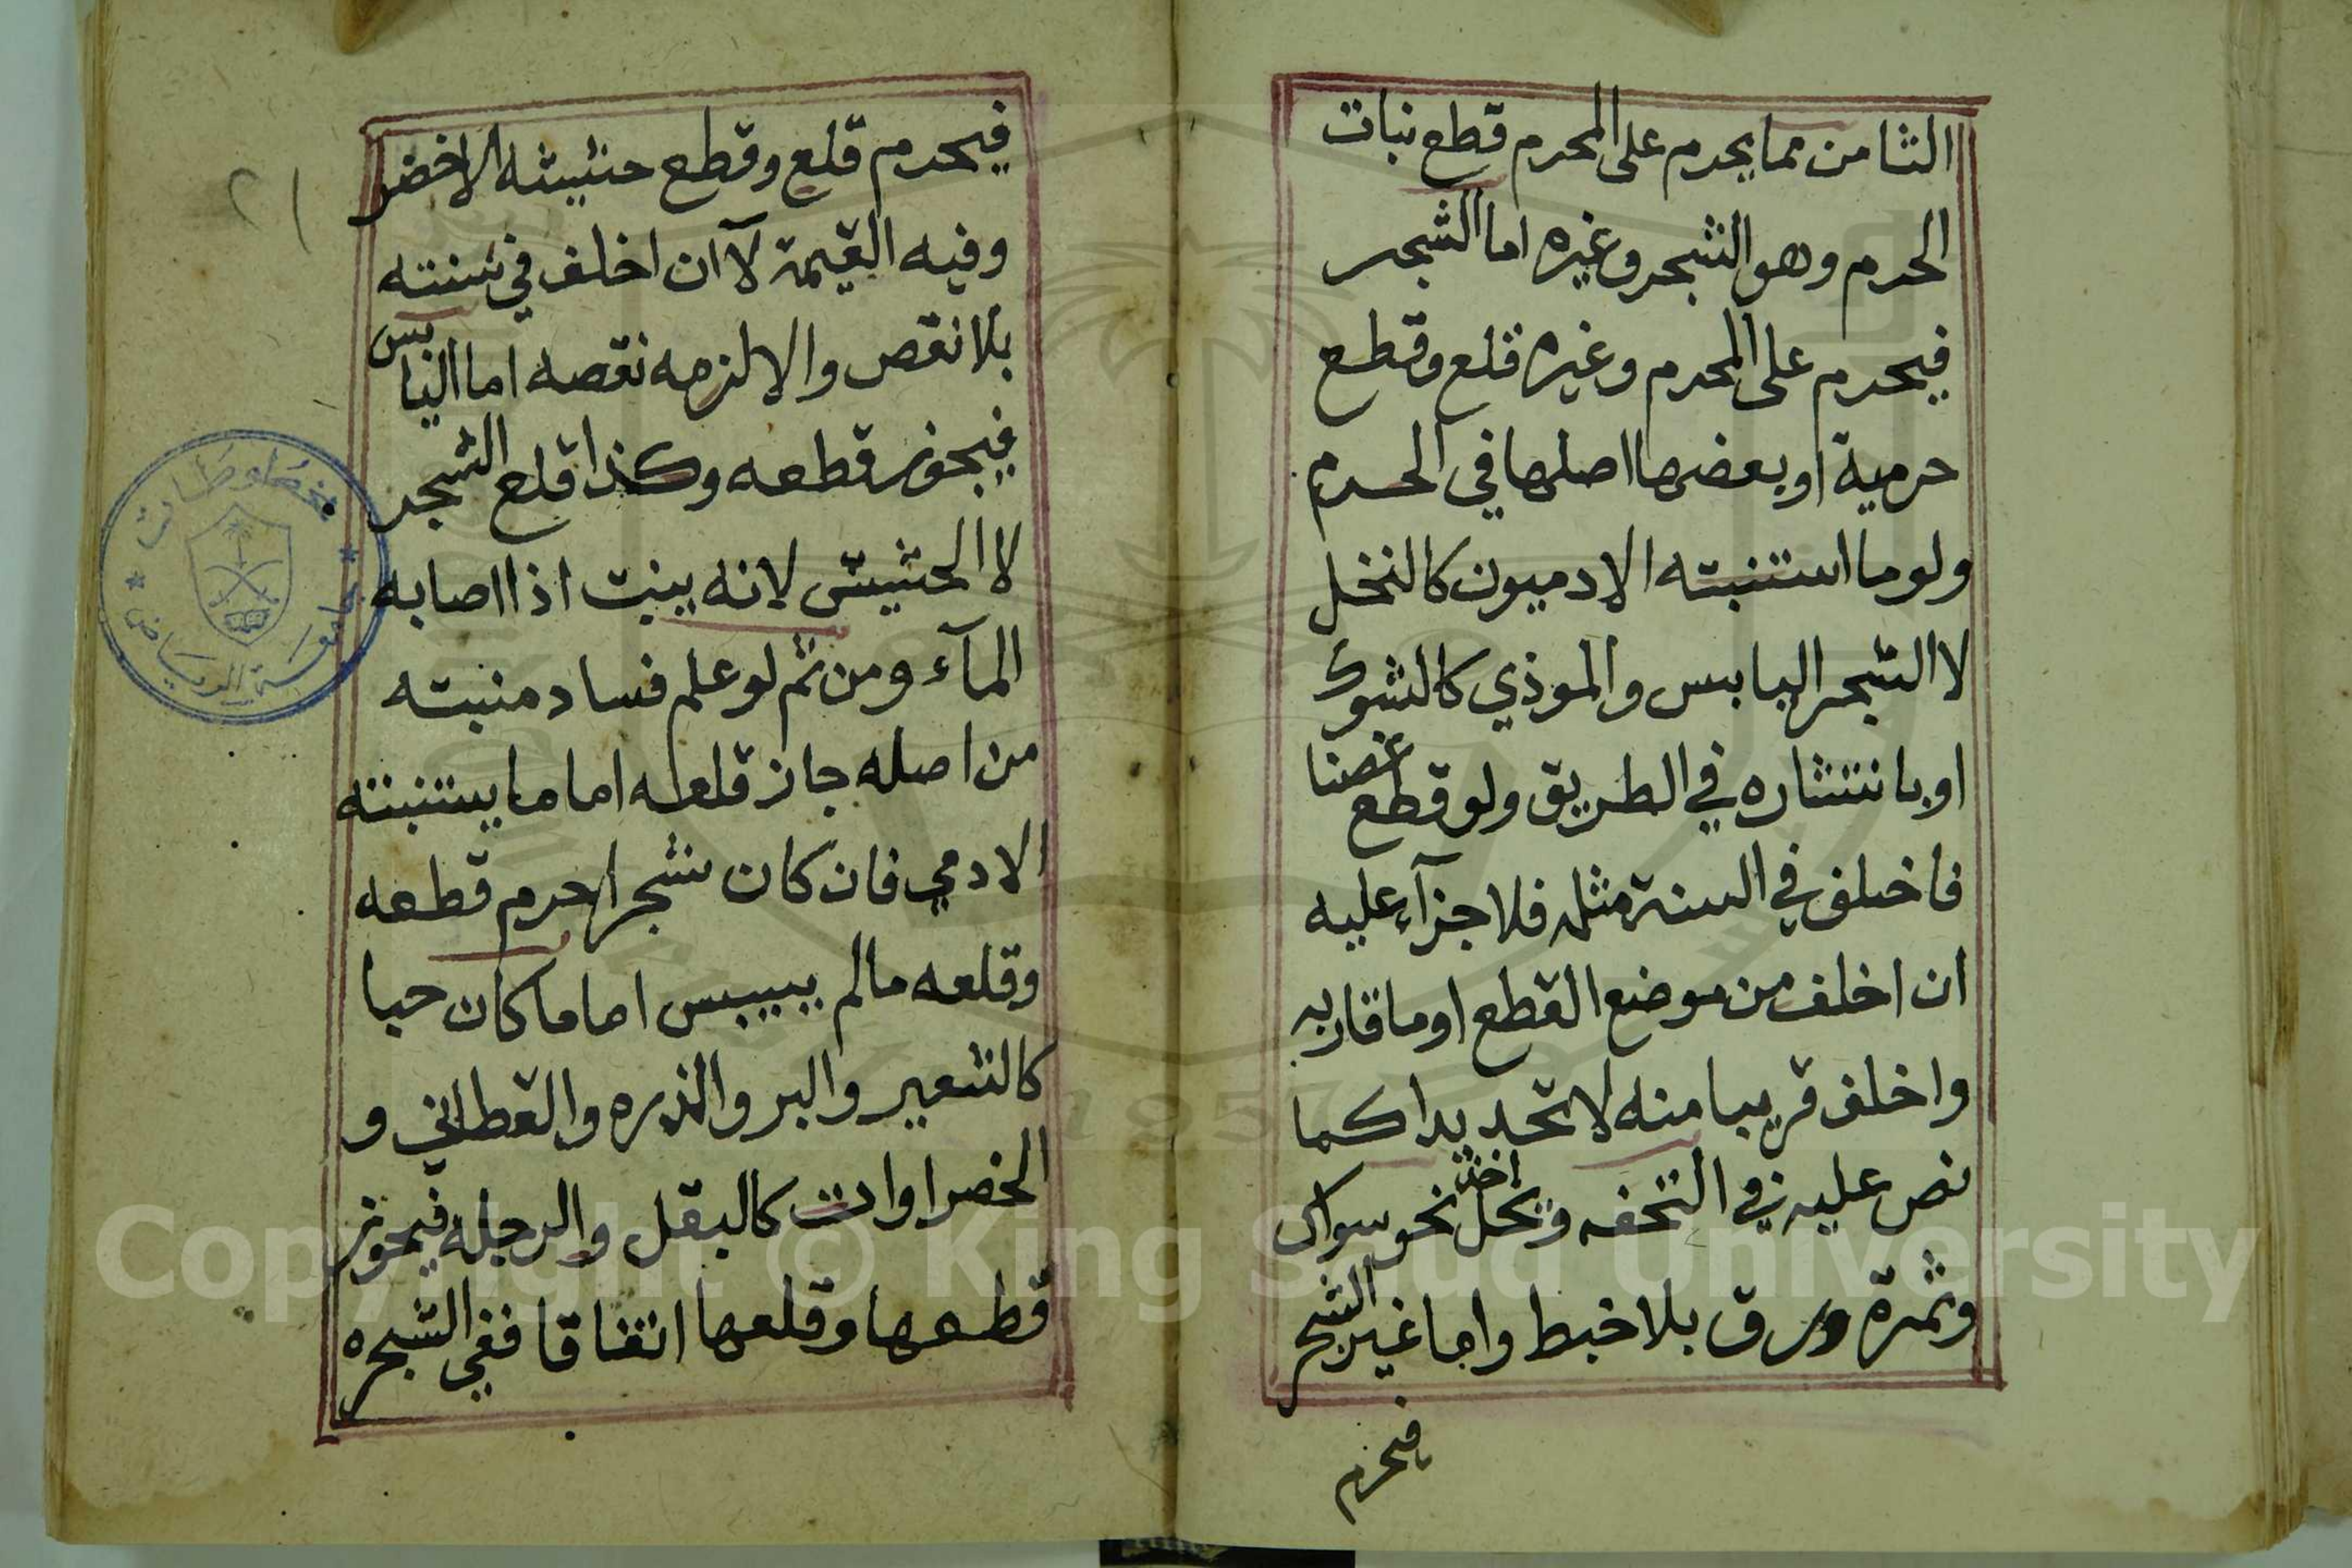 الثامن مما يحرم على المحرم قطع نبات
الحرم وهو الشجر وغيره اما الشجر
فيحرم على المحرم وغيره قلع وقطع
حرمية او بعضها اصلها في الحرم
ولو ما استنبته الادميون كالنخل
لا الشجر اليابس والموذي كالشوك
او بانتشاره في الطريق ولو قطع غصنا
فاخلف في السنة مثله فلا جزآء عليه
ان اخلف من موضع القطع او ما قاربه
واخلف قريبا منه لا تحديدا كما
نص عليه في التحفه ويحل اخذ نحو سواك
وثمرة وورق بلا خبط واما غير الشجر
فيحرم
فيحرم قلع وقطع حشيشه الاخضر
وفيه القيمة لآ ان اخلف في سنته
بلا نقص والا لزمه نقصه اما اليابس
فيجوز قطعه وكذا قلع الشجر
لا الحشيش لانه ينبت اذا اصابه
المآء ومن ثم لو علم فساد منبته
من اصله جاز قلعه اما ما يستنبته
الادمي فان كان شجرا حرم قطعه
وقلعه مالم ييبس اما ما كان حبا
كالشعير والبر والذره والقطاني و
الخضراوات كالبقل والرجله فيجوز
قطعها وقلعها اتفاقا ففي الشجره
٢١
مخطوطات
جامعة الرياض
Copyright © King Saud University
1957